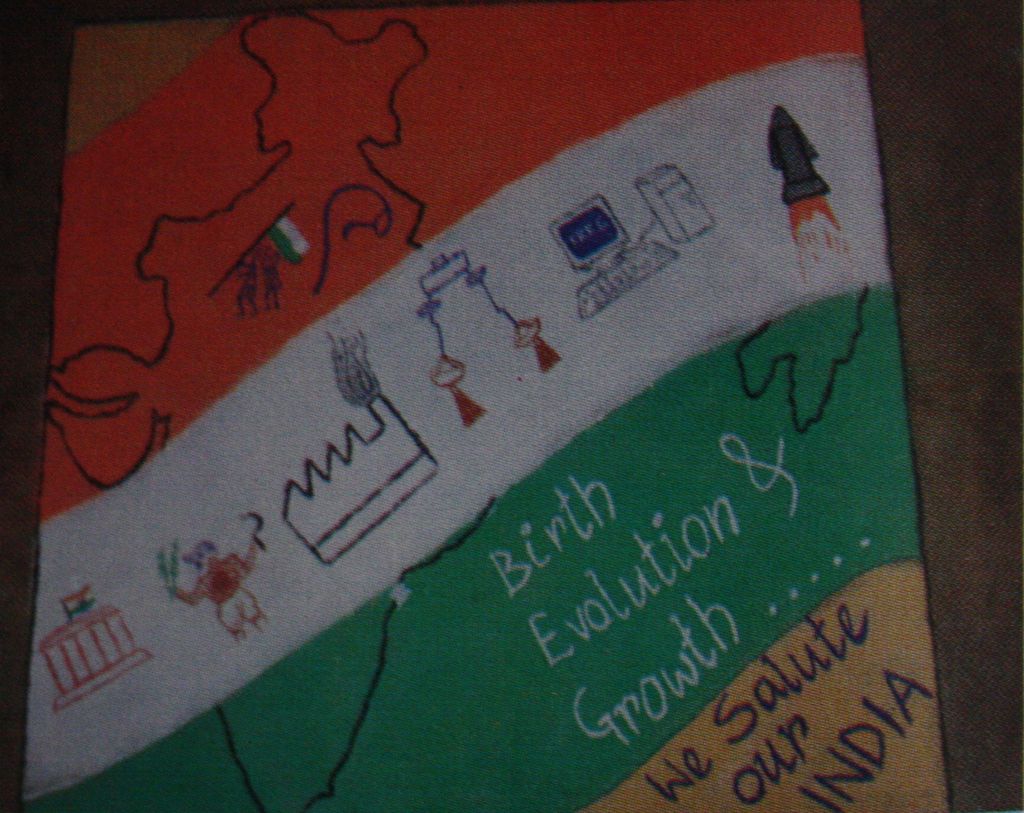 Birth
Evolution &
Growth .....
We Salute
our
INDIA